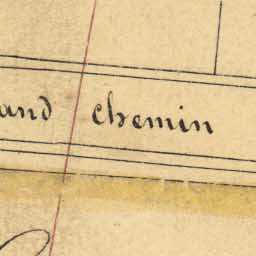 and chemin